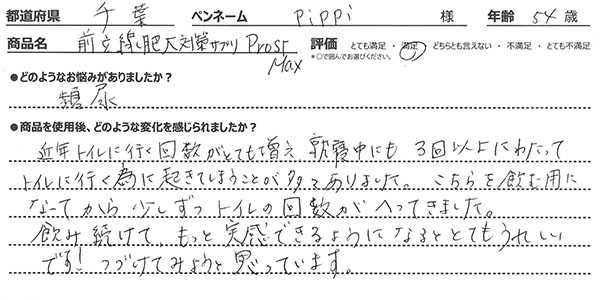 都道府県 千葉 ペンネーム pippi 様 年齢 54 歳
商品名 前立線肥大対策サプリ Prost Max 評価 とても満足 ・ 満足 ・ どちらとも言えない ・ 不満足 ・ とても不満足
*○で囲んでお選びください。
●どのようなお悩みがありましたか?
頻尿
●商品を使用後、どのような変化を感じられましたか?
近年トイレに行く回数がとても増え 就寝中にも 3回以上にわたって
トイレに行く為に起きてしまうことが多々ありました。 こちらを飲む用に
なってから 少しずつ トイレの回数が へってきました。
飲み続けて、もっと 実感できるように なると とても うれしい
です! つづけてみようと 思っています。